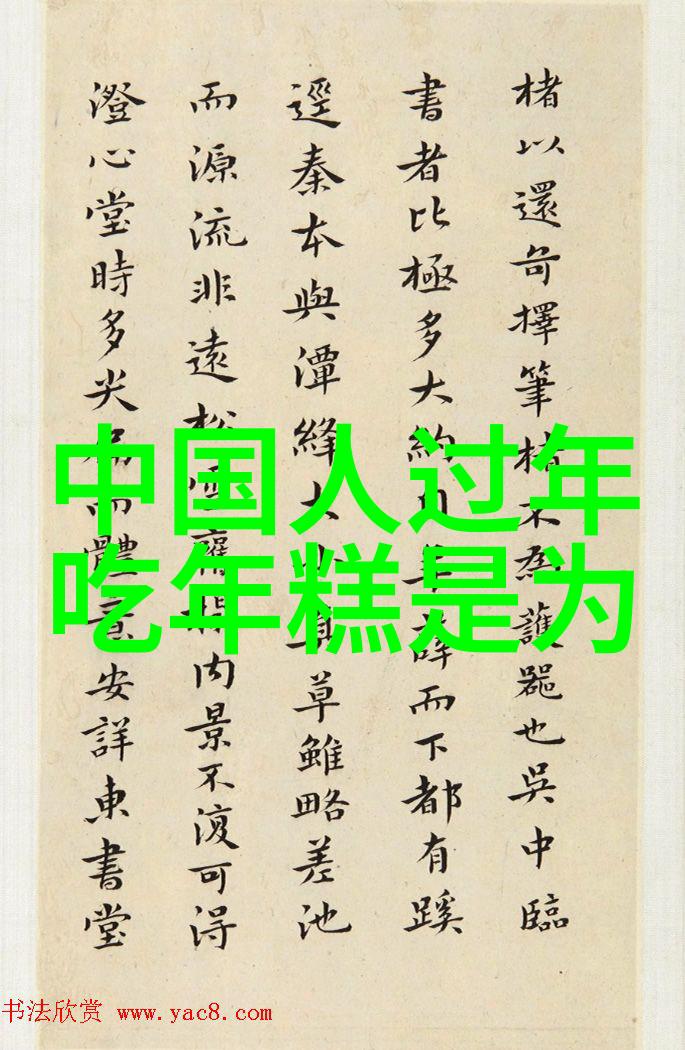 中国人过年
吃年糕是为
楮以還奇擇筆楮不為護器也吳中臨
書者比極多大約而下都有蹊
逕秦本與潭絳大小草雖略差池
而源流非遠松內景不復可得
澄心堂時多尖而體意安詳東書堂
书法欣赏 www.yac8.com